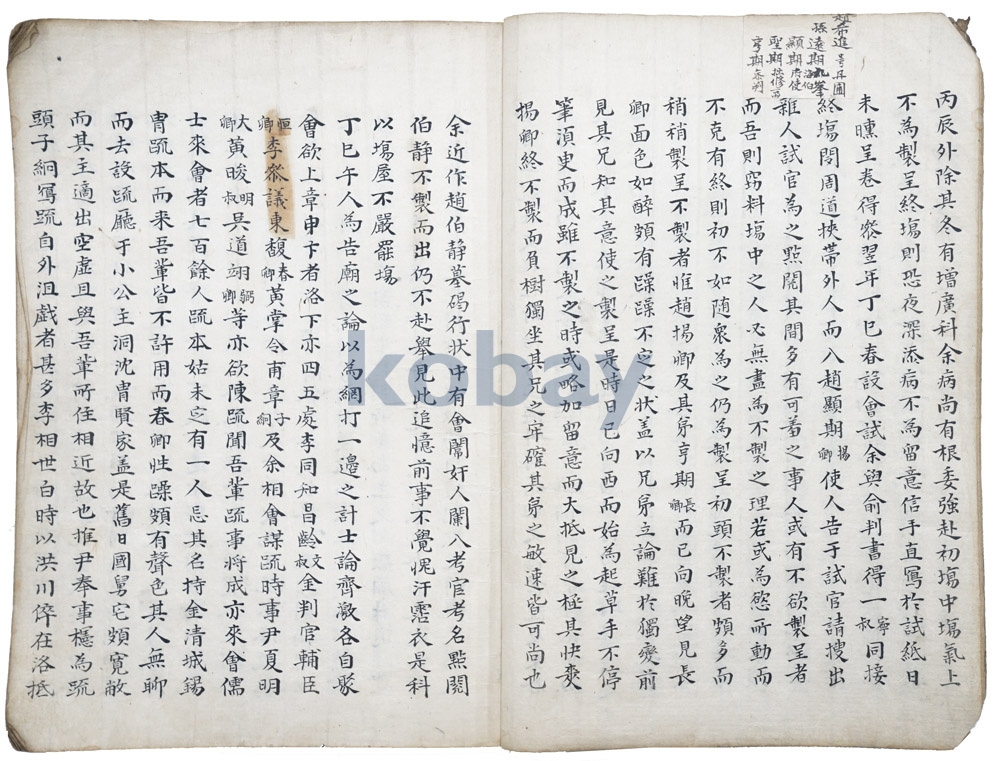 趙希進 号丹圃
孫遠期
顯期
聖期
亨期 參判
丙辰外除其冬有增廣科余病尚有根委強赴初場中場氣上
不為製呈終場則恐夜深添病不為留意信手直寫於試紙日
未曛呈卷得參翌年丁巳春設會試余與俞判書得一寧叔同接
終場閱周道挾帶外人而入趙顯期揚卿使人告于試官請搜出
雜人試官為之點閱其間多有可羞之事人或有不欲製呈者
而吾則竊料場中之人必無盡為不製之理若或為慾所動而
不克有終則初不如隨衆為之仍為製呈初頭不製者頗多而
稍稍製呈不製者惟趙揚卿及其弟亨期長卿而已向晚望見長
卿面色如醉頗有躁躁不定之状盖以兄弟立論難於獨變前
見其兄知其意使之製呈是時日已向西而始為起草手不停
筆湏臾而成雖不製之時或略加留意而大抵見之極其快爽
揚卿終不製而負樹獨坐其兄之牢確其弟之敏速皆可尚也
余近作趙伯静墓碣行状中有會闈奸人闌入考官考名點閱
伯静不製而出仍不赴舉見此追憶前事不覺愧汗霑衣是科
以場屋不嚴罷場
丁巳午人為告廟之論以為網打一邊之計士論齊激各自聚
會欲上章申卞者洛下亦四五處李同知昌齡文叔金判官輔臣
卿李參議東馥春卿黃掌令甫章子絅及余相會謀䟽時事尹夏明
大卿黃晙明叔吳道翊弼卿等亦欲陳䟽聞吾輩䟽事将成亦來會儒
士來會者七百餘人䟽本姑未定有一人忘其名持金清城錫
冑䟽本而来吾輩皆不許用而春卿性躁頗有聲色其人無聊
而去設䟽廳于小公主洞沈冑賢家盖是舊日國舅宅頗寛敞
而其主適出空虛且與吾輩所住相近故也推尹奉事櫶為䟽
頭子絅寫䟽自外沮戱者甚多李相世白時以洪川倅在洛抵
kobay